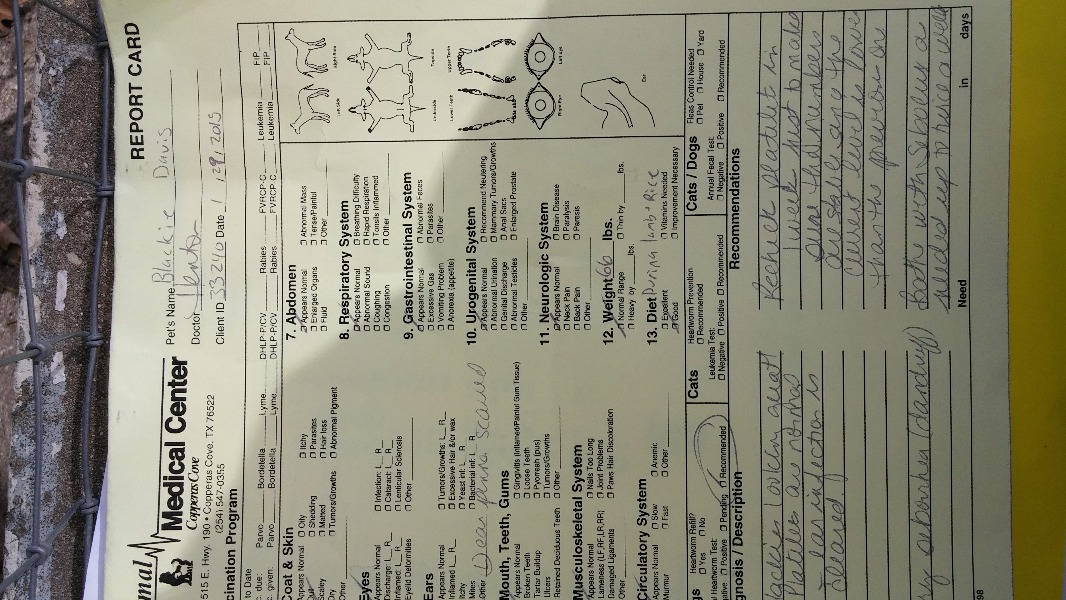 REPORT CARD
Medical Center
Copperas Cove
515 E. Hwy. 190 • Copperas Cove, TX 76522
(254) 547-0355
Pet's Name Blackie Davis
Doctor
Client ID 33240 Date 1 / 29 / 2015
cination Program
to Date
c. due: Parvo Bordetella Lyme DHLP-P/CV Rabies FVRCP-C Leukemia FIP
c. given: Parvo Bordetella Lyme DHLP-P/CV Rabies FVRCP-C Leukemia FIP
Coat & Skin
Appears Normal Oily Itchy
Shedding Parasites
Scaley Matted Hair loss
Dry Tumors/Growths Abnormal Pigment
Other
Eyes
Appears Normal Infection: L R
Discharge: L R Cataract: L R
Inflamed: L R Lenticular Sclerosis
Eyelid Deformities Other
Ears
Appears Normal Tumors/Growths: L R
Inflamed L R Excessive Hair &/or wax
Itchy Yeast inf: L R
Mites Bacterial inf: L R
Other Deep pinna scarred
Mouth, Teeth, Gums
Appears Normal Gingivitis (Inflamed/Painful Gum Tissue)
Broken Teeth Loose Teeth
Tartar Buildup Pyorreah (pus)
Ulcers Tumors/Growths
Retained Deciduous Teeth Other
Musculoskeletal System
Appears Normal Nails Too Long
Lameness (LF,RF,LR,RR) Joint Problems
Damaged Ligaments Paws Hair Discoloration
Other
Circulatory System
Appears Normal Slow Anemic
Murmur Fast Other
7. Abdomen
Appears Normal Abnormal Mass
Enlarged Organs Tense/Painful
Fluid Other
8. Respiratory System
Appears Normal Breathing Difficulty
Abnormal Sound Rapid Respiration
Coughing Tonsils Inflammed
Congestion Other
9. Gastrointestinal System
Appears Normal Abnormal Feces
Excessive Gas Parasites
Vomiting Problem Other
Anorexia (appetite)
10. Urogenital System
Appears Normal Recommend Neutering
Abnormal Urination Mammary Tumors/Growths
Genital Discharge Anal Sacs
Abnormal Testicles Enlarged Prostate
Other
11. Neurologic System
Appears Normal Brain Disease
Neck Pain Paralysis
Back Pain Paresis
Other
12. Weight 66 lbs.
Normal Range Thin by lbs.
Heavy by lbs.
13. Diet Purina lamb + Rice
Excellent Vitamins Needed
Good Improvement Necessary
Right Side
Left Side
Upper Teeth
Lower Teeth
Left Eye
Right Eye
Ear
gs
Heartworm Refill?
Yes No
Heartworm Test:
Positive Pending Recommended
Cats
Heartworm Prevention
Recommended
Leukemia Test:
Negative Positive Recommended
Cats / Dogs
Annual Fecal Test:
Negative Positive Recommended
Fleas Control Needed
Pet House Yard
gnosis / Description
Blackie's looking great!
Platlets are normal
Ear infection is
cleared
seborrhea (dandruff)
Recommendations
Recheck platelets in
1 week just to make
sure the numbers
are stable and the
current level is lower
than the previous one
Bath with Sebolux as
needed up to twice a week
Need in days
98